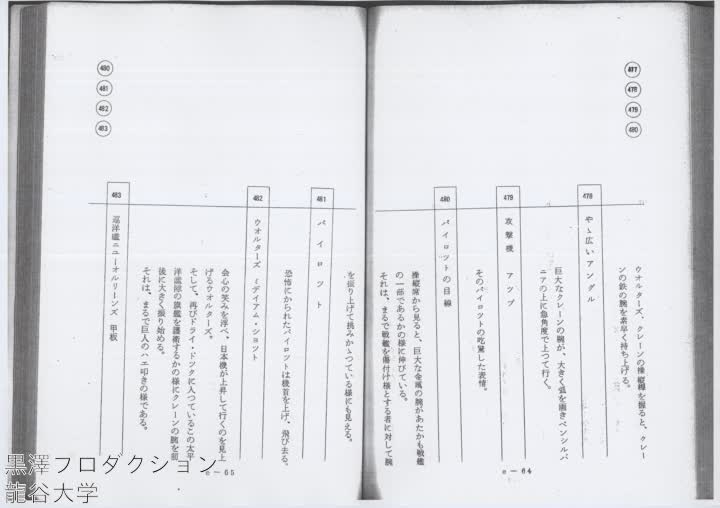 477
478
479
480
ウオルターズ、クレーンの操縦桿を握ると、クレー
ンの鉄の腕を素早く持ち上げる。
478
やゝ広いアングル
巨大なクレーンの腕が、大きく弧を画きペンシルバ
ニアの上に急角度で上つて行く。
479
攻撃機 アツプ
そのパイロツトの吃驚した表情。
480
パイロツトの目線
操縦席から見ると、巨大な金属の腕があたかも戦艦
の一部であるかの様に伸びている。
それは、まるで戦艦を傷付け様とする者に対して腕
e－64
480
481
482
483
を振り上げて挑みかゝつている様にも見える。
481
パイロツト
恐怖にかられたパイロツトは機首を上げ、飛び去る。
482
ウオルターズ ミデイアム・シヨツト
会心の笑みを浮べ、日本機が上昇して行くのを見上
げるウオルターズ。
そして、再びドライ・ドツクに入つているこの太平
洋艦隊の旗艦を護衛するかの様にクレーンの腕を前
後に大きく振り始める。
それは、まるで巨人のハエ叩きの様である。
483
巡洋艦ニユーオルリーンズ 甲板
e－65
黒澤プロダクション
龍谷大学